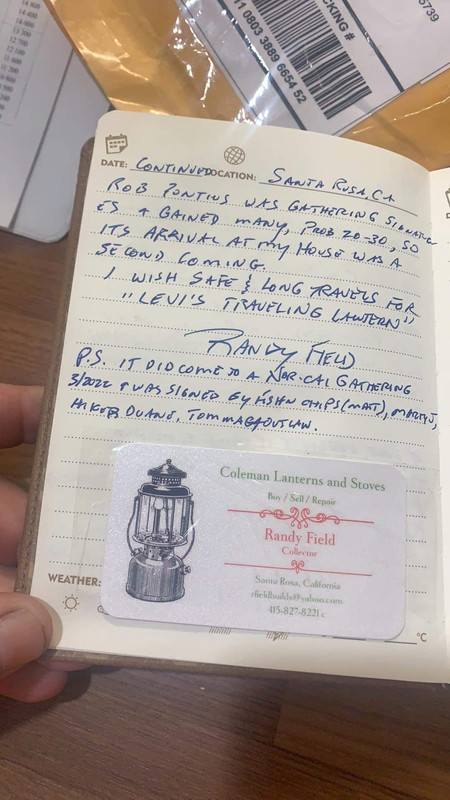 CKING #
6739
11 0803 3889 6654 52
DATE: CONTINUED LOCATION: SANTA ROSA, CA
ROB PONTIUS WAS GATHERING SIGNATUR
ES & GAINED MANY, PROB 20-30, SO
ITS ARRIVAL AT MY HOUSE WAS A
SECOND COMING.
I WISH SAFE & LONG TRAVELS FOR
"LEVI'S TRAVELING LANTERN"
RANDY FIELD
P.S. IT DID COME TO A NOR-CAL GATHERING
3/2022 & WAS SIGNED BY FISHN CHIPS (MAT), MARTY J,
HIKER DUANE, TOMMAGAOUTLAW.
Coleman Lanterns and Stoves
Buy / Sell / Repair
Randy Field
Collector
Santa Rosa, California
rfieldbuilds@yahoo.com
415-827-8221 c
WEATHER:
°C